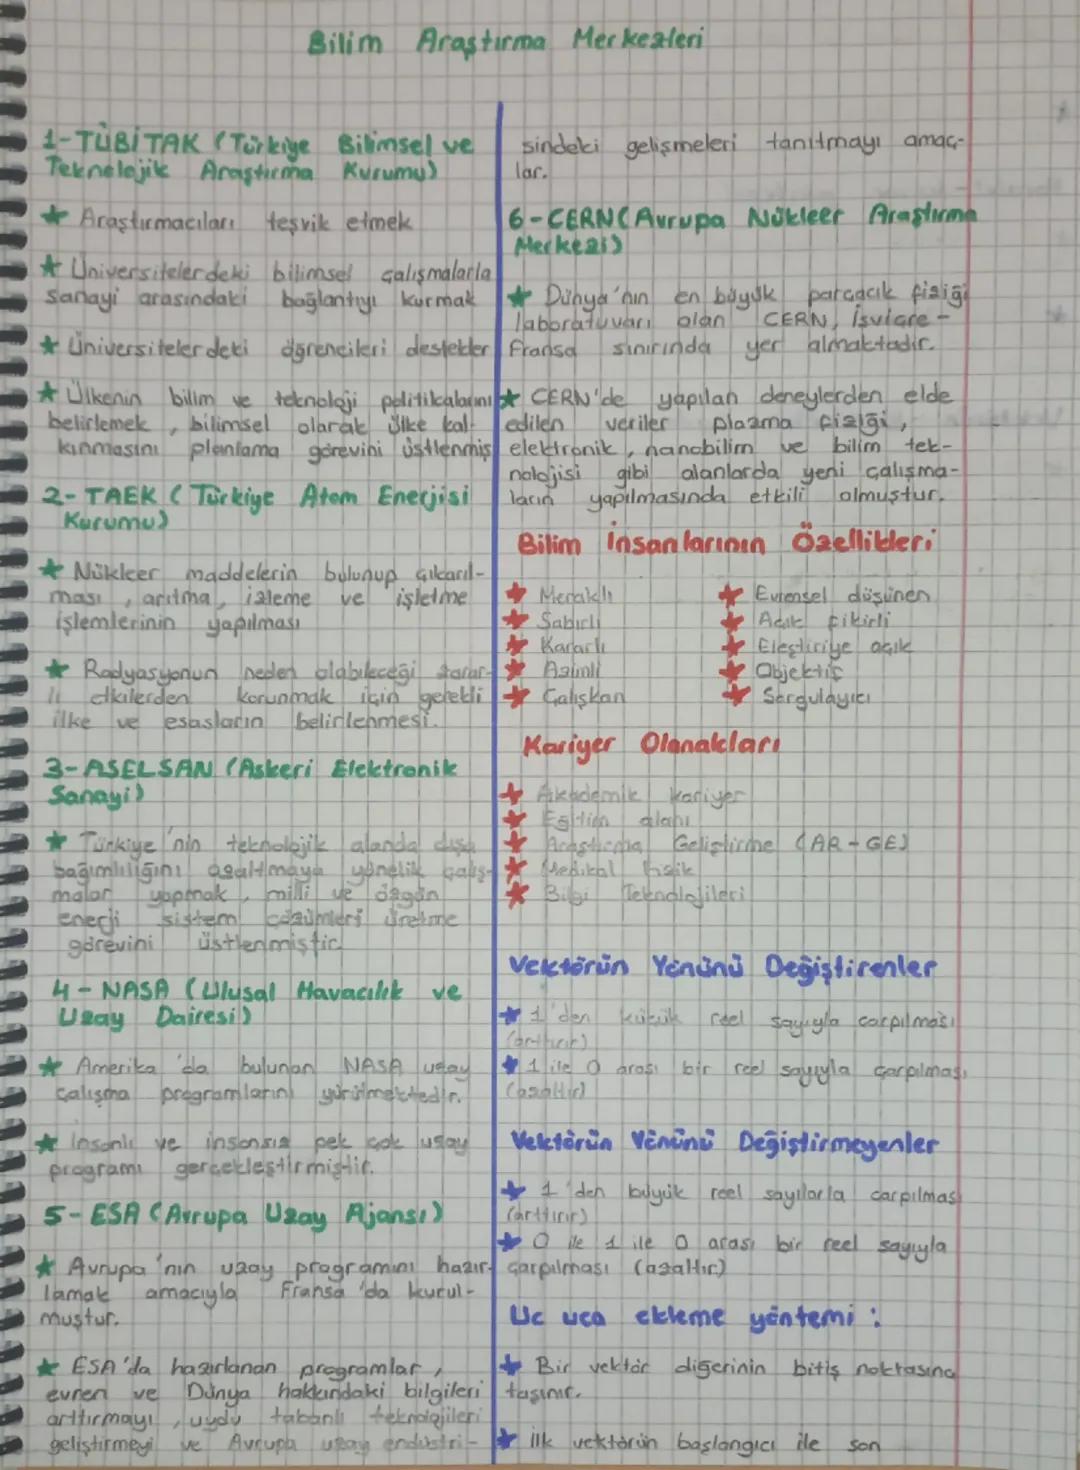 Bilim Araştırma Merkezleri
1-TÜBİTAK (Türkiye Bilimsel ve
Teknolojik Araştırma Kurumu)
★ Araştırmacıları teşvik etmek
★ Üniversitelerdeki bilimsel çalışmalarla
sanayi arasındaki bağlantıyı kurmak
★ Üniversitelerdeki öğrencileri destekler
★ Ülkenin bilim ve teknoloji politikalarını
belirlemek, bilimsel olarak ülke kal-
kınmasını planlama görevini üstlenmiş
2- TAEK (Türkiye Atom Enerjisi
Kurumu)
★ Nükleer maddelerin bulunup çıkarıl-
ması, arıtma, izleme ve işletme
işlemlerinin yapılması
★ Radyasyonun neden olabileceği zarar-
lı etkilerden korunmak için gerekli
ilke ve esasların belirlenmesi.
3-ASELSAN (Askeri Elektronik
Sanayi)
★ Türkiye'nin teknolojik alanda dışa
bağımlılığını azaltmaya yönelik çalış-
malar yapmak, milli ve özgün
enerji sistem çözümleri üretme
görevini üstlenmiştir.
4- NASA (Ulusal Havacılık ve
Uzay Dairesi)
★ Amerika'da bulunan NASA uzay
çalışma programlarını yürütmektedir.
★ İnsanlı ve insansız pek çok uzay
programı gerçekleştirmiştir.
5- ESA (Avrupa Uzay Ajansı)
★ Avrupa'nın uzay programını hazır-
lamak amacıyla Fransa'da kurul-
muştur.
★ ESA'da hazırlanan programlar,
evren ve Dünya hakkındaki bilgileri
arttırmayı, uydu tabanlı teknolojileri
geliştirmeyi ve Avrupa uzay endüstri-
sindeki gelişmeleri tanıtmayı amaç-
lar.
6-CERN(Avrupa Nükleer Araştırma
Merkezi)
★ Dünya'nın en büyük parçacık fiziği
laboratuvarı olan CERN, İsviçre-
Fransa sınırında yer almaktadır.
★ CERN'de yapılan deneylerden elde
edilen veriler plazma fiziği,
elektronik, nanobilim ve bilim tek-
nolojisi gibi alanlarda yeni çalışma-
ların yapılmasında etkili olmuştur.
Bilim İnsanlarının Özellikleri
★ Meraklı ★ Evrensel düşünen
★ Sabırlı ★ Açık fikirli
★ Kararlı ★ Eleştiriye açık
★ Azimli ★ Objektif
★ Çalışkan ★ Sorgulayıcı
Kariyer Olanakları
★ Akademik kariyer
★ Eğitim alanı
★ Araştırma Geliştirme (AR-GE)
★ Medikal fizik
★ Bilgi Teknolojileri
Vektörün Yönünü Değiştirenler
★ 1'den küçük reel sayıyla çarpılması
(arttırır)
★ 1 ile 0 arası bir reel sayıyla çarpılması
(azaltır)
Vektörün Yönünü Değiştirmeyenler
★ 1'den büyük reel sayılarla çarpılması
(arttırır)
★ 0 ile 1 ile 0 arası bir reel sayıyla
çarpılması (azaltır)
Uc uca ekleme yöntemi :
★ Bir vektör diğerinin bitiş noktasına
taşınır.
★ İlk vektörün başlangıcı ile son